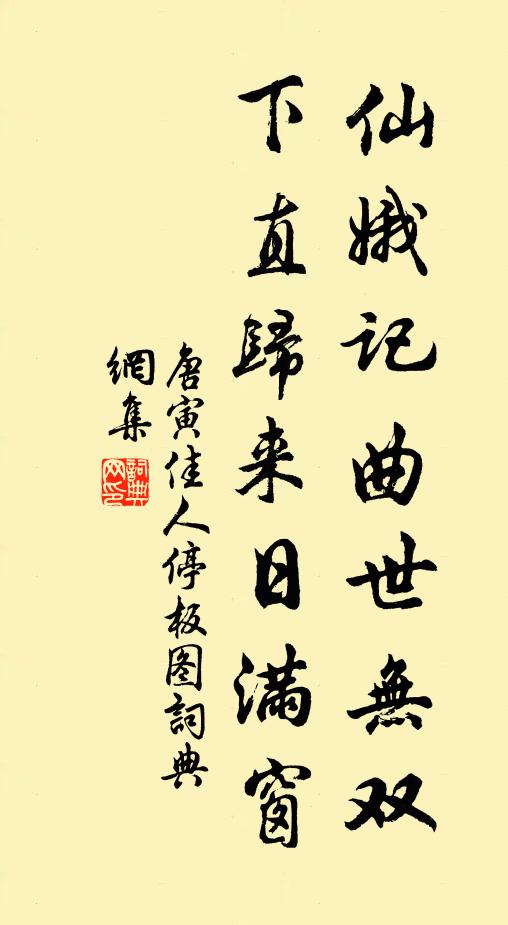 仙娥记曲世無双
下直歸来日满窗
唐寅佳人停板图詞典
網集
詞典
网印